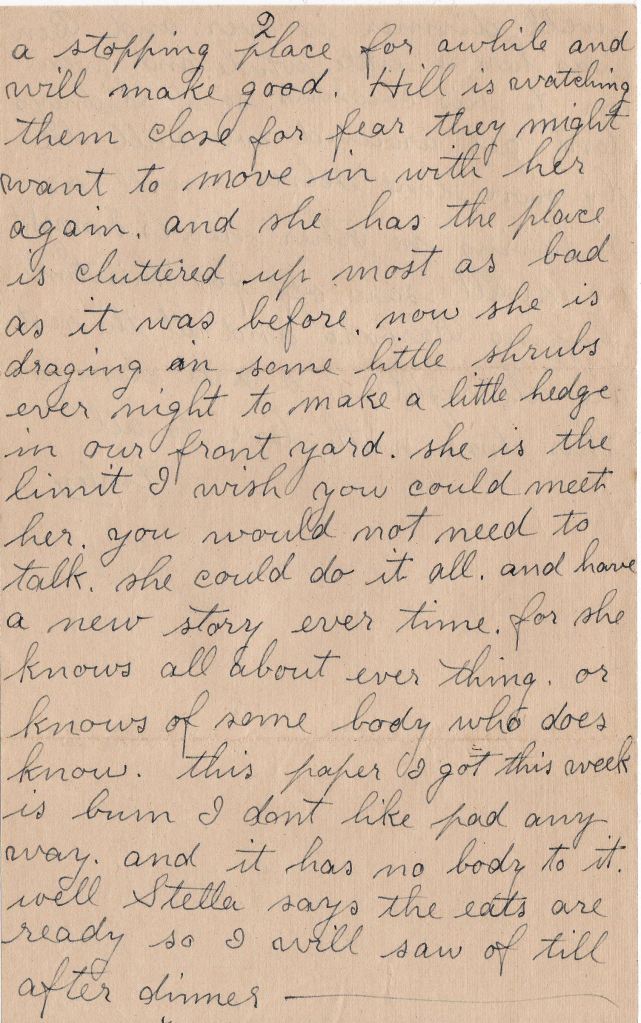 2
a stopping place for awhile and
will make good. Hill is watching
them close for fear they might
want to move in with her
again. and she has the place
is cluttered up most as bad
as it was before. now she is
draging in some little shrubs
ever night to make a little hedge
in our front yard. she is the
limit I wish you could meet
her. you would not need to
talk. she could do it all. and have
a new story ever time. for she
knows all about ever thing. or
knows of some body who does
know. this paper I got this week
is bum I dont like pad any
way. and it has no body to it.
well Stella says the eats are
ready so I will saw of till
after dinner —